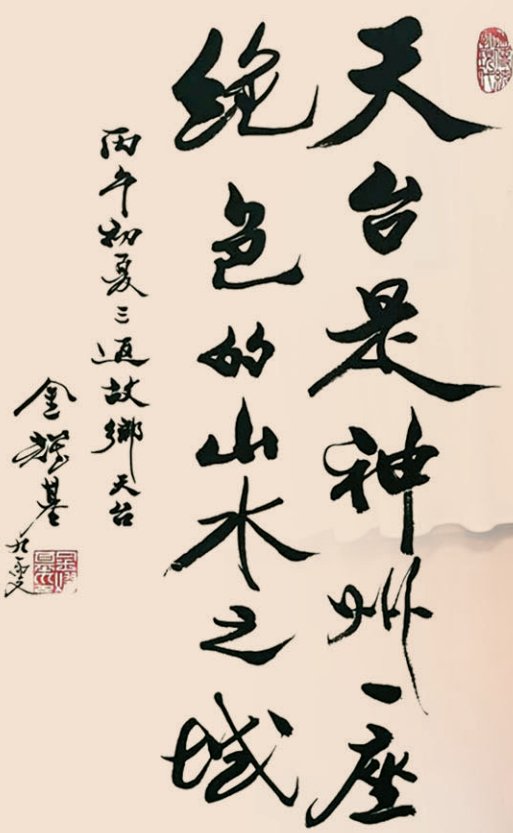 天台是神州一座
绝色的山水之城
丙午初夏三返故鄉天台
金耀基
九一叟